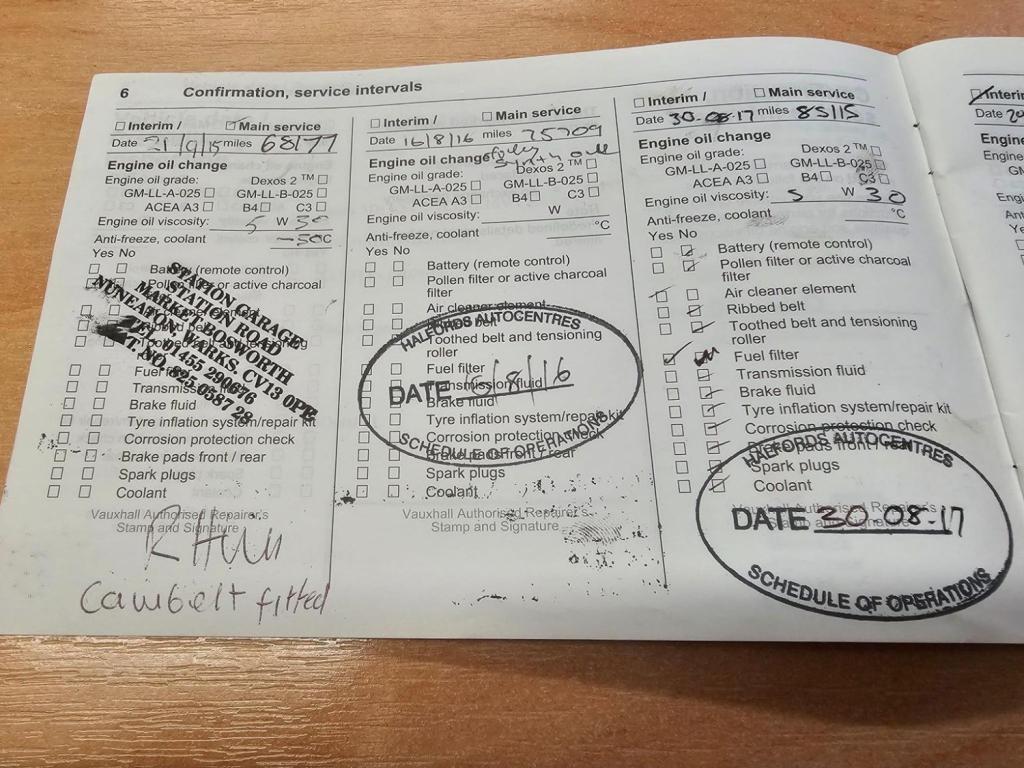 6 Confirmation, service intervals
☐ Interim / ☑ Main service
Date 21/9/15 miles 68177
Engine oil change
Engine oil grade: Dexos 2 ™ ☐
GM-LL-A-025 ☐ GM-LL-B-025 ☐
ACEA A3 ☐ B4 ☐ C3 ☐
Engine oil viscosity: 5 W 30
Anti-freeze, coolant -50C
Yes No
Battery (remote control)
Pollen filter or active charcoal
STATION GARAGE
STATION ROAD
MARKET BOSWORTH
NUNEATON, WARKS. CV13 0PE
01455 290676
VAT. NO. 825 0587 28
Fuel filter
Transmission fluid
Brake fluid
Tyre inflation system/repair kit
Corrosion protection check
Brake pads front / rear
Spark plugs
Coolant
Vauxhall Authorised Repairer's
Stamp and Signature
Cambelt fitted
☐ Interim / ☐ Main service
Date 16/8/16 miles 75709
Engine oil change fully
Synth oil
Engine oil grade: Dexos 2 ™ ☐
GM-LL-A-025 ☐ GM-LL-B-025 ☐
ACEA A3 ☐ B4 ☐ C3 ☐
Engine oil viscosity: W
Anti-freeze, coolant °C
Yes No
Battery (remote control)
Pollen filter or active charcoal
filter
Air cleaner element
Ribbed belt
Toothed belt and tensioning
roller
Fuel filter
Transmission fluid
Brake fluid
Tyre inflation system/repair kit
Corrosion protection check
Brake pads front / rear
Spark plugs
Coolant
HALFORDS AUTOCENTRES
DATE 16/8/16
SCHEDULE OF OPERATIONS
Vauxhall Authorised Repairer's
Stamp and Signature
☐ Interim / ☐ Main service
Date 30-08-17 miles 85115
Engine oil change
Engine oil grade: Dexos 2 ™ ☐
GM-LL-A-025 ☐ GM-LL-B-025 ☐
ACEA A3 ☐ B4 ☐ C3 ☐
Engine oil viscosity: 5 W 30
Anti-freeze, coolant °C
Yes No
Battery (remote control)
Pollen filter or active charcoal
filter
Air cleaner element
Ribbed belt
Toothed belt and tensioning
roller
Fuel filter
Transmission fluid
Brake fluid
Tyre inflation system/repair kit
Corrosion protection check
Brake pads front / rear
Spark plugs
Coolant
HALFORDS AUTOCENTRES
DATE 30 08-17
SCHEDULE OF OPERATIONS